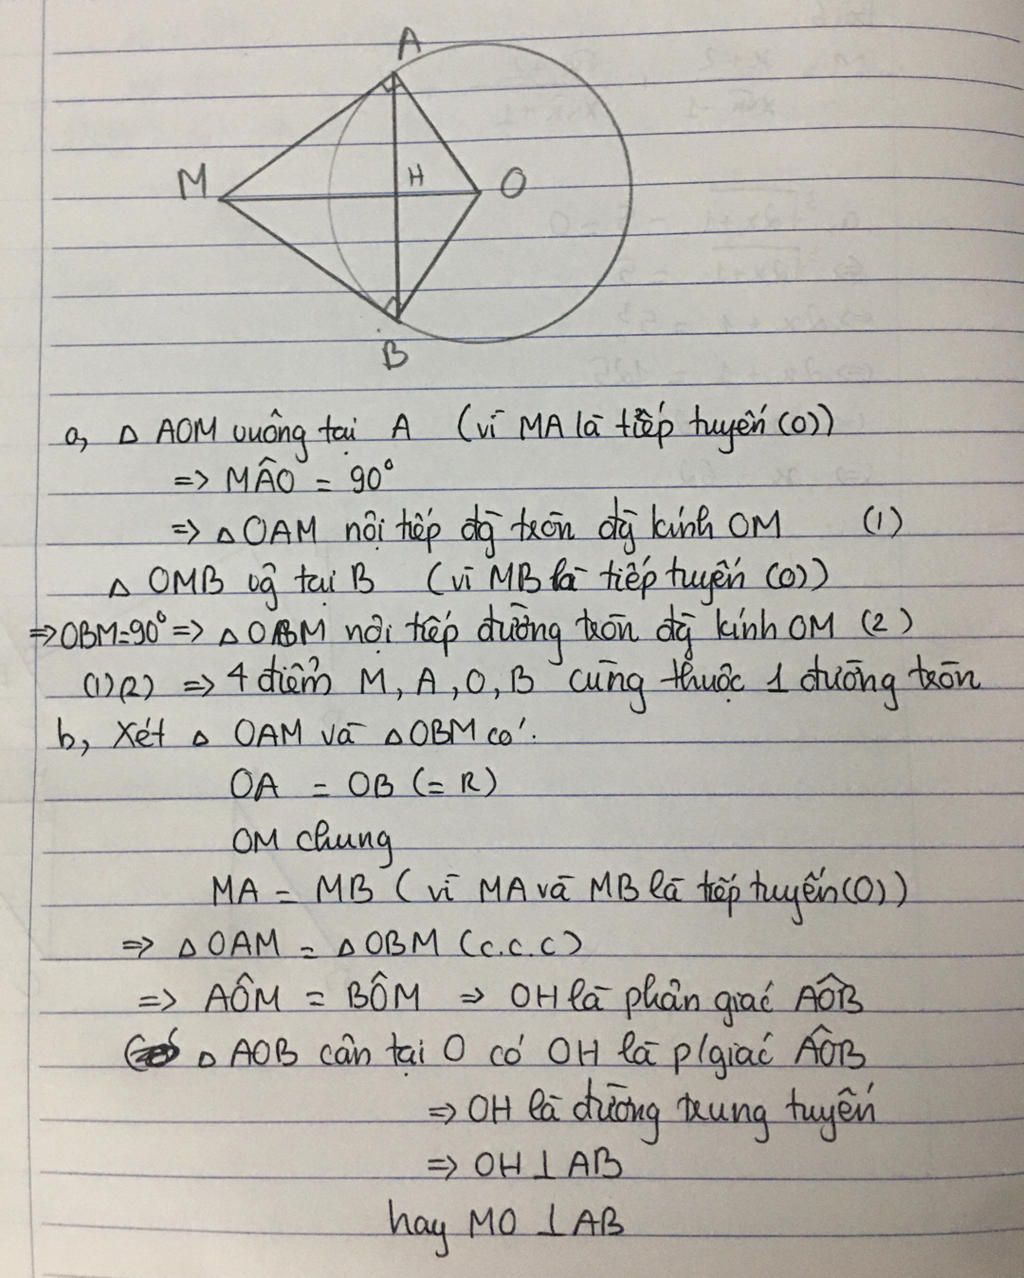 A
M
H
O
B
a, △ AOM vuông tại A (vì MA là tiếp tuyến (O))
=> MÂO = 90°
=> △OAM nội tiếp đg̀ tròn đg̀ kính OM (1)
△ OMB vg̃ tại B (vì MB là tiếp tuyến (O))
=> OBM=90° => △OBM nội tiếp đường tròn đg̀ kính OM (2)
(1)(2) => 4 điểm M, A, O, B cùng thuộc 1 đường tròn
b, Xét △ OAM và △OBM có:
OA = OB (= R)
OM chung
MA = MB (vì MA và MB là tiếp tuyến(O))
=> △OAM = △OBM (c.c.c)
=> AÔM = BÔM => OH là phân giác AÔB
△ AOB cân tại O có OH là p/giác AÔB
=> OH là đường trung tuyến
=> OH ⊥ AB
hay MO ⊥ AB